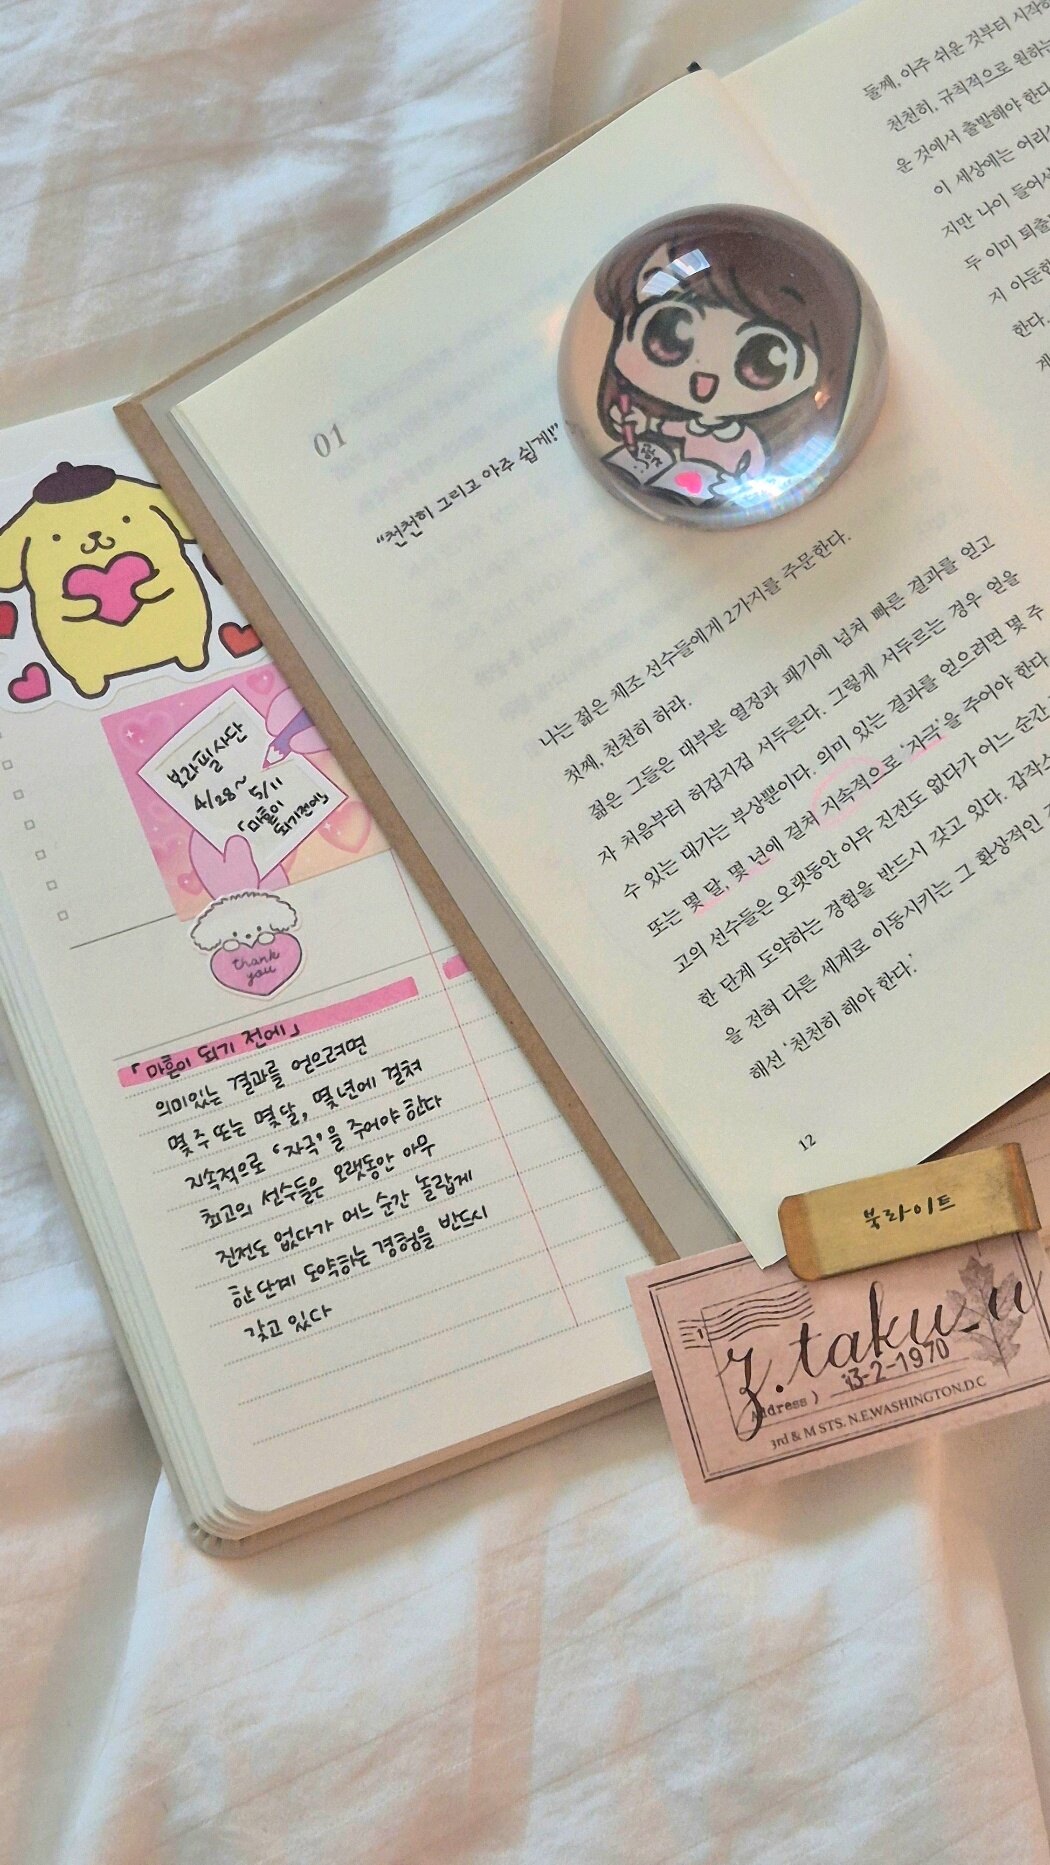 01
"천천히 그리고 아주 쉽게!"
나는 젊은 체조 선수들에게 2가지를 주문한다.
첫째, 천천히 하라.
젊은 그들은 대부분 열정과 패기에 넘쳐 빠른 결과를 얻고
자 처음부터 허겁지겁 서두른다. 그렇게 서두르는 경우 얻을
수 있는 대가는 부상뿐이다. 의미 있는 결과를 얻으려면 몇 주
또는 몇 달, 몇 년에 걸쳐 지속적으로 '자극'을 주어야 한다
고의 선수들은 오랫동안 아무 진전도 없다가 어느 순간
한 단계 도약하는 경험을 반드시 갖고 있다. 갑작스
을 전혀 다른 세계로 이동시키는 그 환상적인
해선 '천천히 해야 한다.'
12
둘째, 아주 쉬운 것부터 시작하
천천히, 규칙적으로 원하는
운 것에서 출발해야 한다
이 세상에는 어리석
지만 나이 들어서
두 이미 퇴출
지 아둔한
한다.
보라필사단
4/28~
5/11
「마흔이
되기전에」
thank
you
「마흔이 되기 전에」
의미있는 결과를 얻으려면
몇 주 또는 몇달, 몇년에 걸쳐
지속적으로 '자극'을 주어야 한다
최고의 선수들은 오랫동안 아무
진전도 없다가 어느 순간 놀랍게
한 단계 도약하는 경험을 반드시
갖고 있다
북라이트
z.taku_u
Address )
13-2-1970
3rd & M STS. N.E,WASHINGTON.D.C